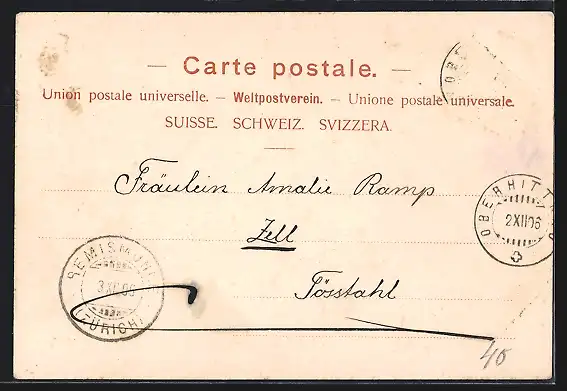 — Carte postale. —
Union postale universelle. – Weltpostverein. – Unione postale universale.
SUISSE. SCHWEIZ. SVIZZERA.
Fräulein Amalie Ramp
Zell
Tösstahl
OBERHITT
2 XII 06
REMISMÜ
3 XII 06
(ZÜRICH)
40